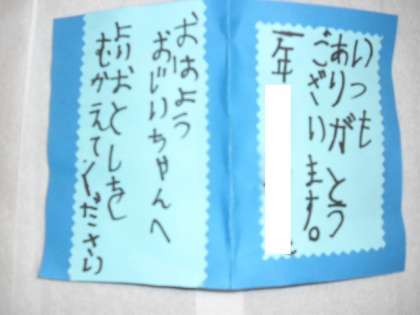 いつも
ありがとう
ございます。
一年
おはよう
おじいちゃんへ
よいおとしを
むかえてください